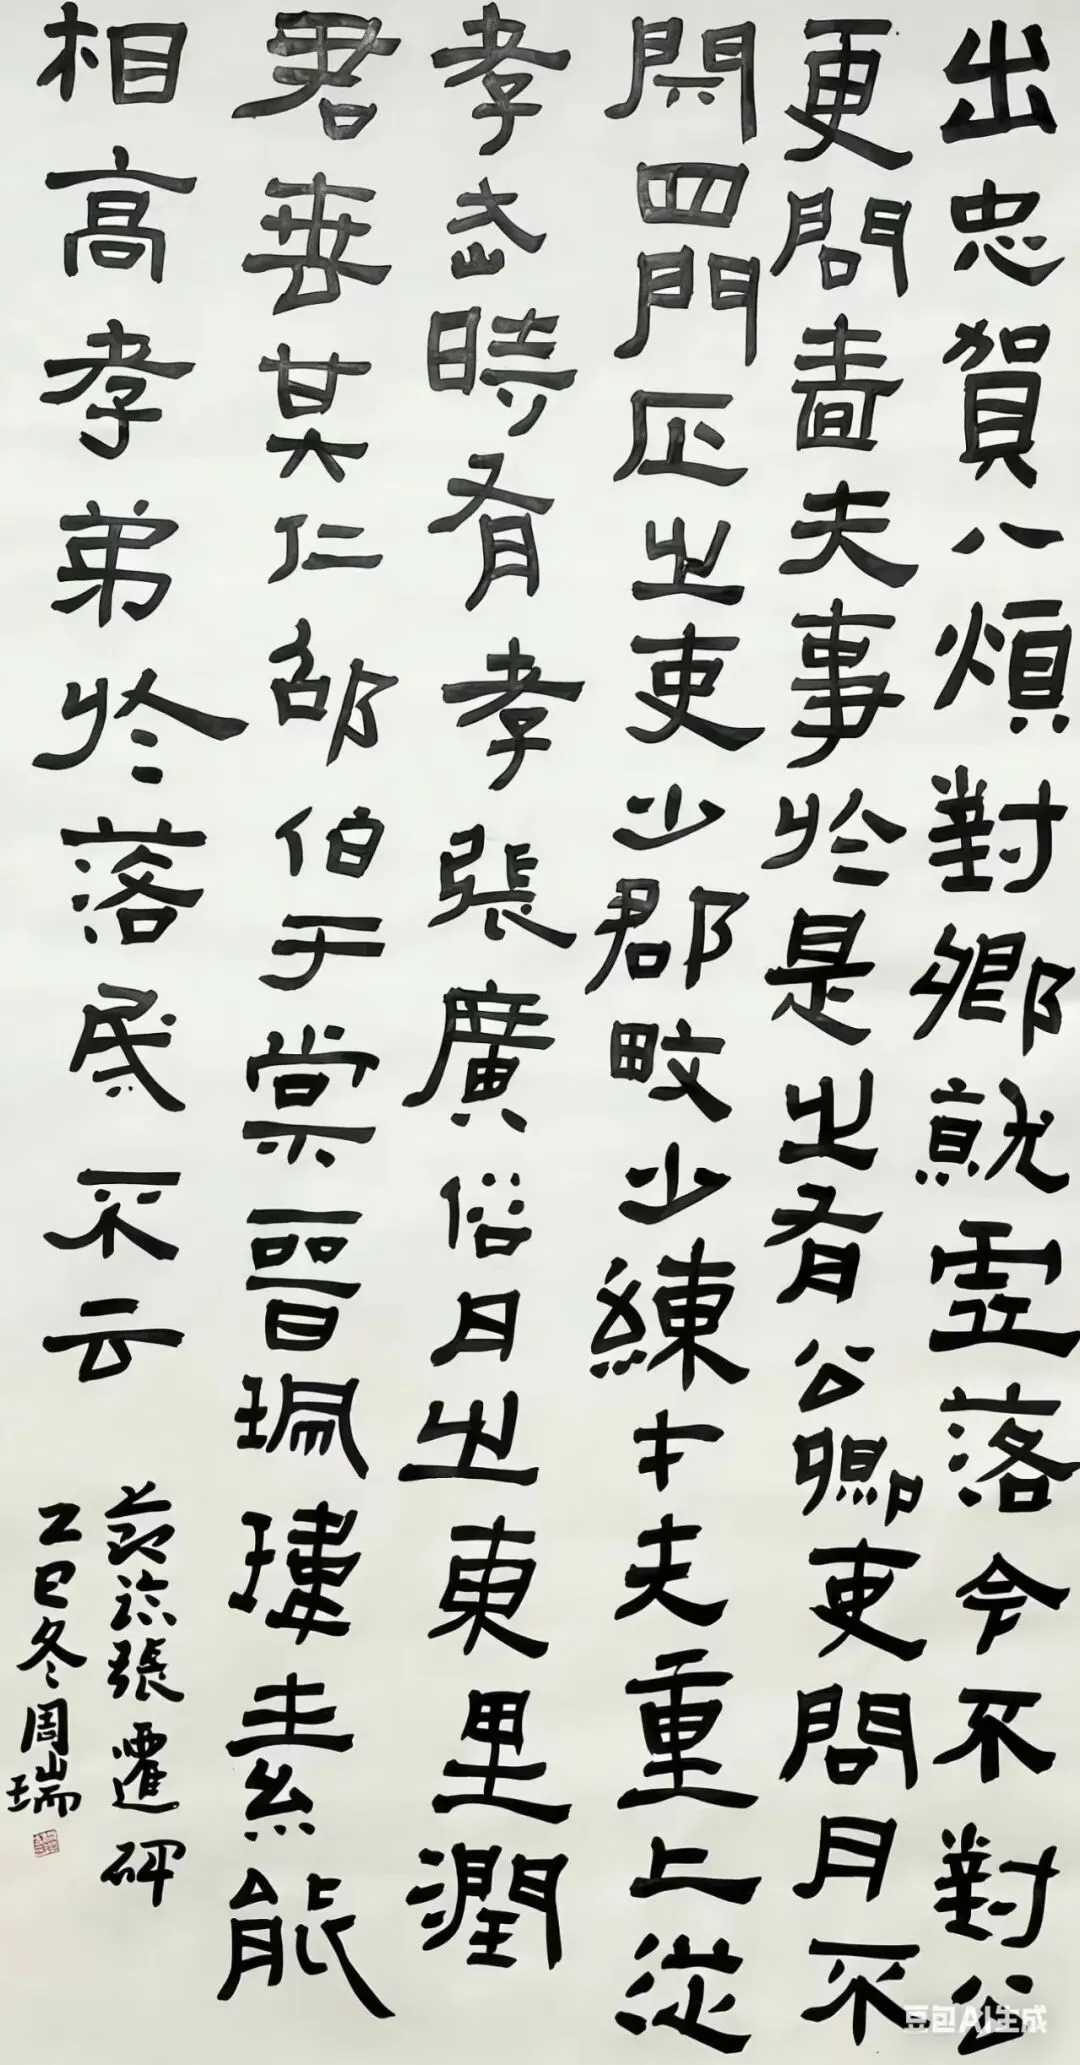 出忠賀八煩對鄉就虛落令不對公
更問嗇夫事於是之有公卿吏問月不
閞四門正之吏少郡畋少練才夫重上從
孝武時有孝張廣俗月之東里潤
君喪其仁邵伯于棠晉珮瑋素能
相高孝弟於落民不云
節臨張遷碑
乙巳冬周瑞
豆包AI生成